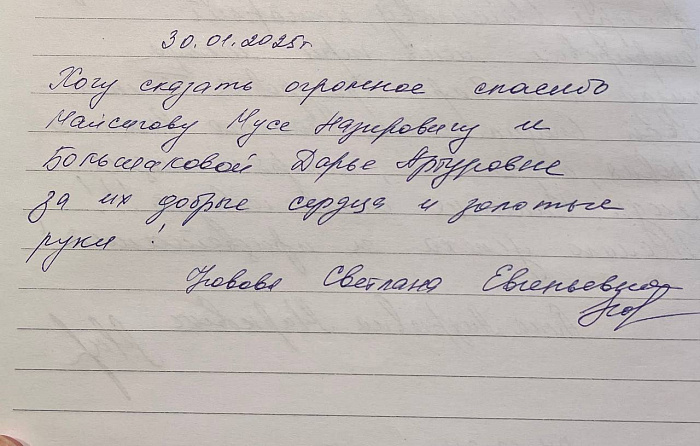 30.01.2025г
Хочу сказать огромное спасибо
Майсигову Мусе Назировичу и
Большаковой Дарье Артуровне
за их добрые сердца и золотые
руки!
Светлана Евгеньевна